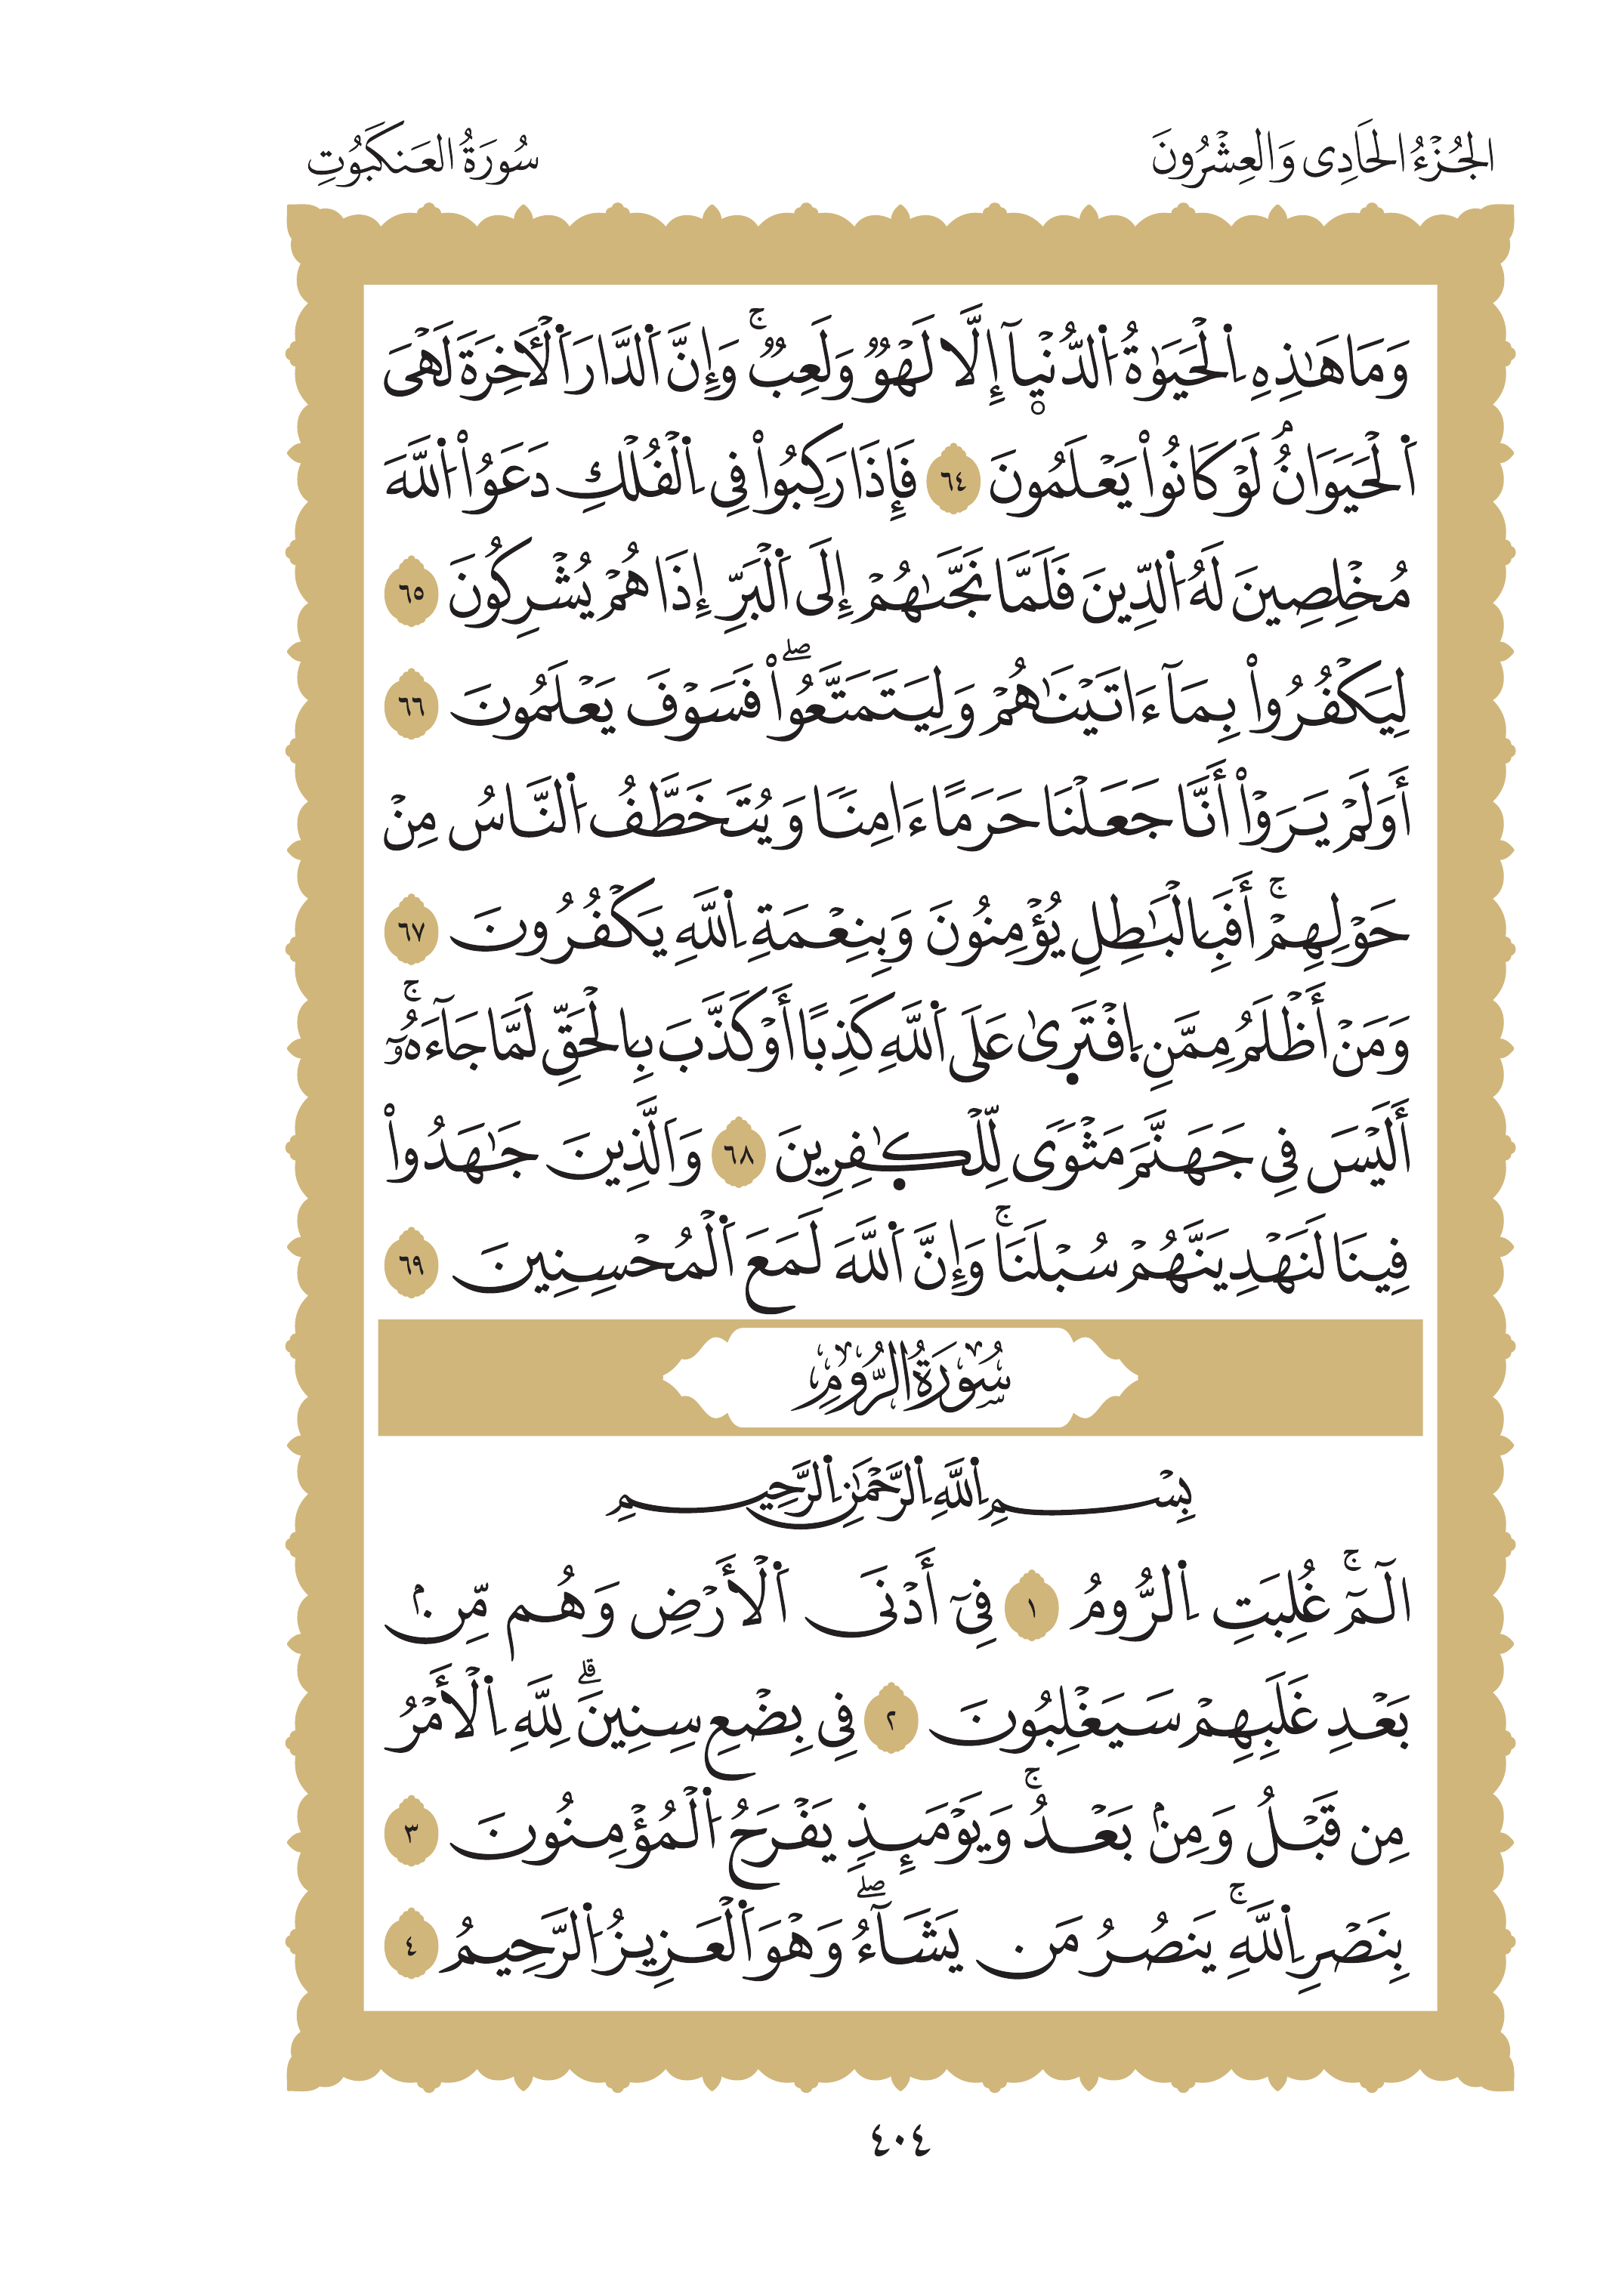 الجُزْءُ الحَادِى وَالعِشْرُونَ
سُورَةُ العَنكَبُوتِ
وَمَا هَٰذِهِ اِ۬لْحَيَوٰةُ اُ۬لدُّنْي۪آ إِلَّا لَهْوٞ وَلَعِبٞۚ وَإِنَّ اَ۬لدَّارَ اَ۬لْأٓخِرَةَ لَهْىَ
اَ۬لْحَيَوَانُۢ لَوْ كَانُواْ يَعْلَمُونَ ٦٤ فَإِذَا رَكِبُواْ فِى اِ۬لْفُلْكِ دَعَوُاْ اُ۬للَّهَ
مُخْلِصِينَ لَهُ اُ۬لدِّينَ فَلَمَّا نَجَّىٰهُمْ إِلَى اَ۬لْبَرِّ إِذَا هُمْ يُشْرِكُونَ ٦٥
لِيَكْفُرُواْ بِمَآ ءَاتَيْنَٰهُمْ وَلِيَتَمَتَّعُواْۖ فَسَوْفَ يَعْلَمُونَ ٦٦
أَوَلَمْ يَرَوْاْ اَنَّا جَعَلْنَا حَرَمًا ءَامِنٗا وَيُتَخَطَّفُ اُ۬لنَّاسُ مِنْ
حَوْلِهِمْۚ أَفَبِالْبَٰطِلِ يُؤْمِنُونَ وَبِنِعْمَةِ اِ۬للَّهِ يَكْفُرُونَ ٦٧
وَمَنْ أَظْلَمُ مِمَّنِ اِ۪فْتَر۪ىٰ عَلَى اَ۬للَّهِ كَذِبًا أَوْ كَذَّبَ بِالْحَقِّ لَمَّا جَآءَهُۥٓۚ
أَلَيْسَ فِى جَهَنَّمَ مَثْوٗى لِّلْكٰ۪فِرِينَ ٦٨ وَالَّذِينَ جَٰهَدُواْ
فِينَا لَنَهْدِيَنَّهُمْ سُبْلَنَاۚ وَإِنَّ اَ۬للَّهَ لَمَعَ اَ۬لْمُحْسِنِينَ ٦٩
سُورَةُ الرُّومِ
بِسْمِ اِ۬للَّهِ اِ۬لرَّحْمَٰنِ اِ۬لرَّحِيمِ
الٓمٓۚ غُلِبَتِ اِ۬لرُّومُ ١ فِىٓ أَدْنَى اَ۬لْأَرْضِ وَهُم مِّنۢ
بَعْدِ غَلَبِهِمْ سَيَغْلِبُونَ ٢ فِى بِضْعِ سِنِينَۗ لِلَّهِ اِ۬لْأَمْرُ
مِن قَبْلُ وَمِنۢ بَعْدُۚ وَيَوْمَئِذٖ يَفْرَحُ اُ۬لْمُؤْمِنُونَ ٣
بِنَصْرِ اِ۬للَّهِۚ يَنصُرُ مَن يَشَآءُۖ وَهْوَ اَ۬لْعَزِيزُ اُ۬لرَّحِيمُ ٤
٤٠٤